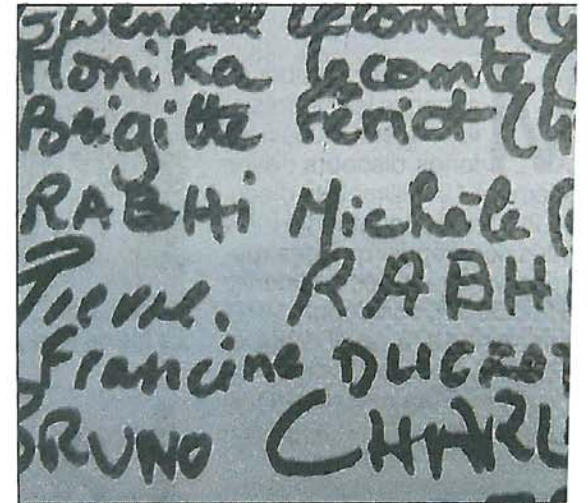 Gwendal Lecomte (
Monika Lecomte (
Brigitte Fériot (
RABHi Michèle (
Pierre. RABH
Francine DUCROT
BRUNO CHARL